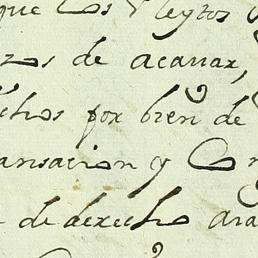 que Los Pleytos
zos de acavax,
chos por bien de
ansacion y Con
de derecho